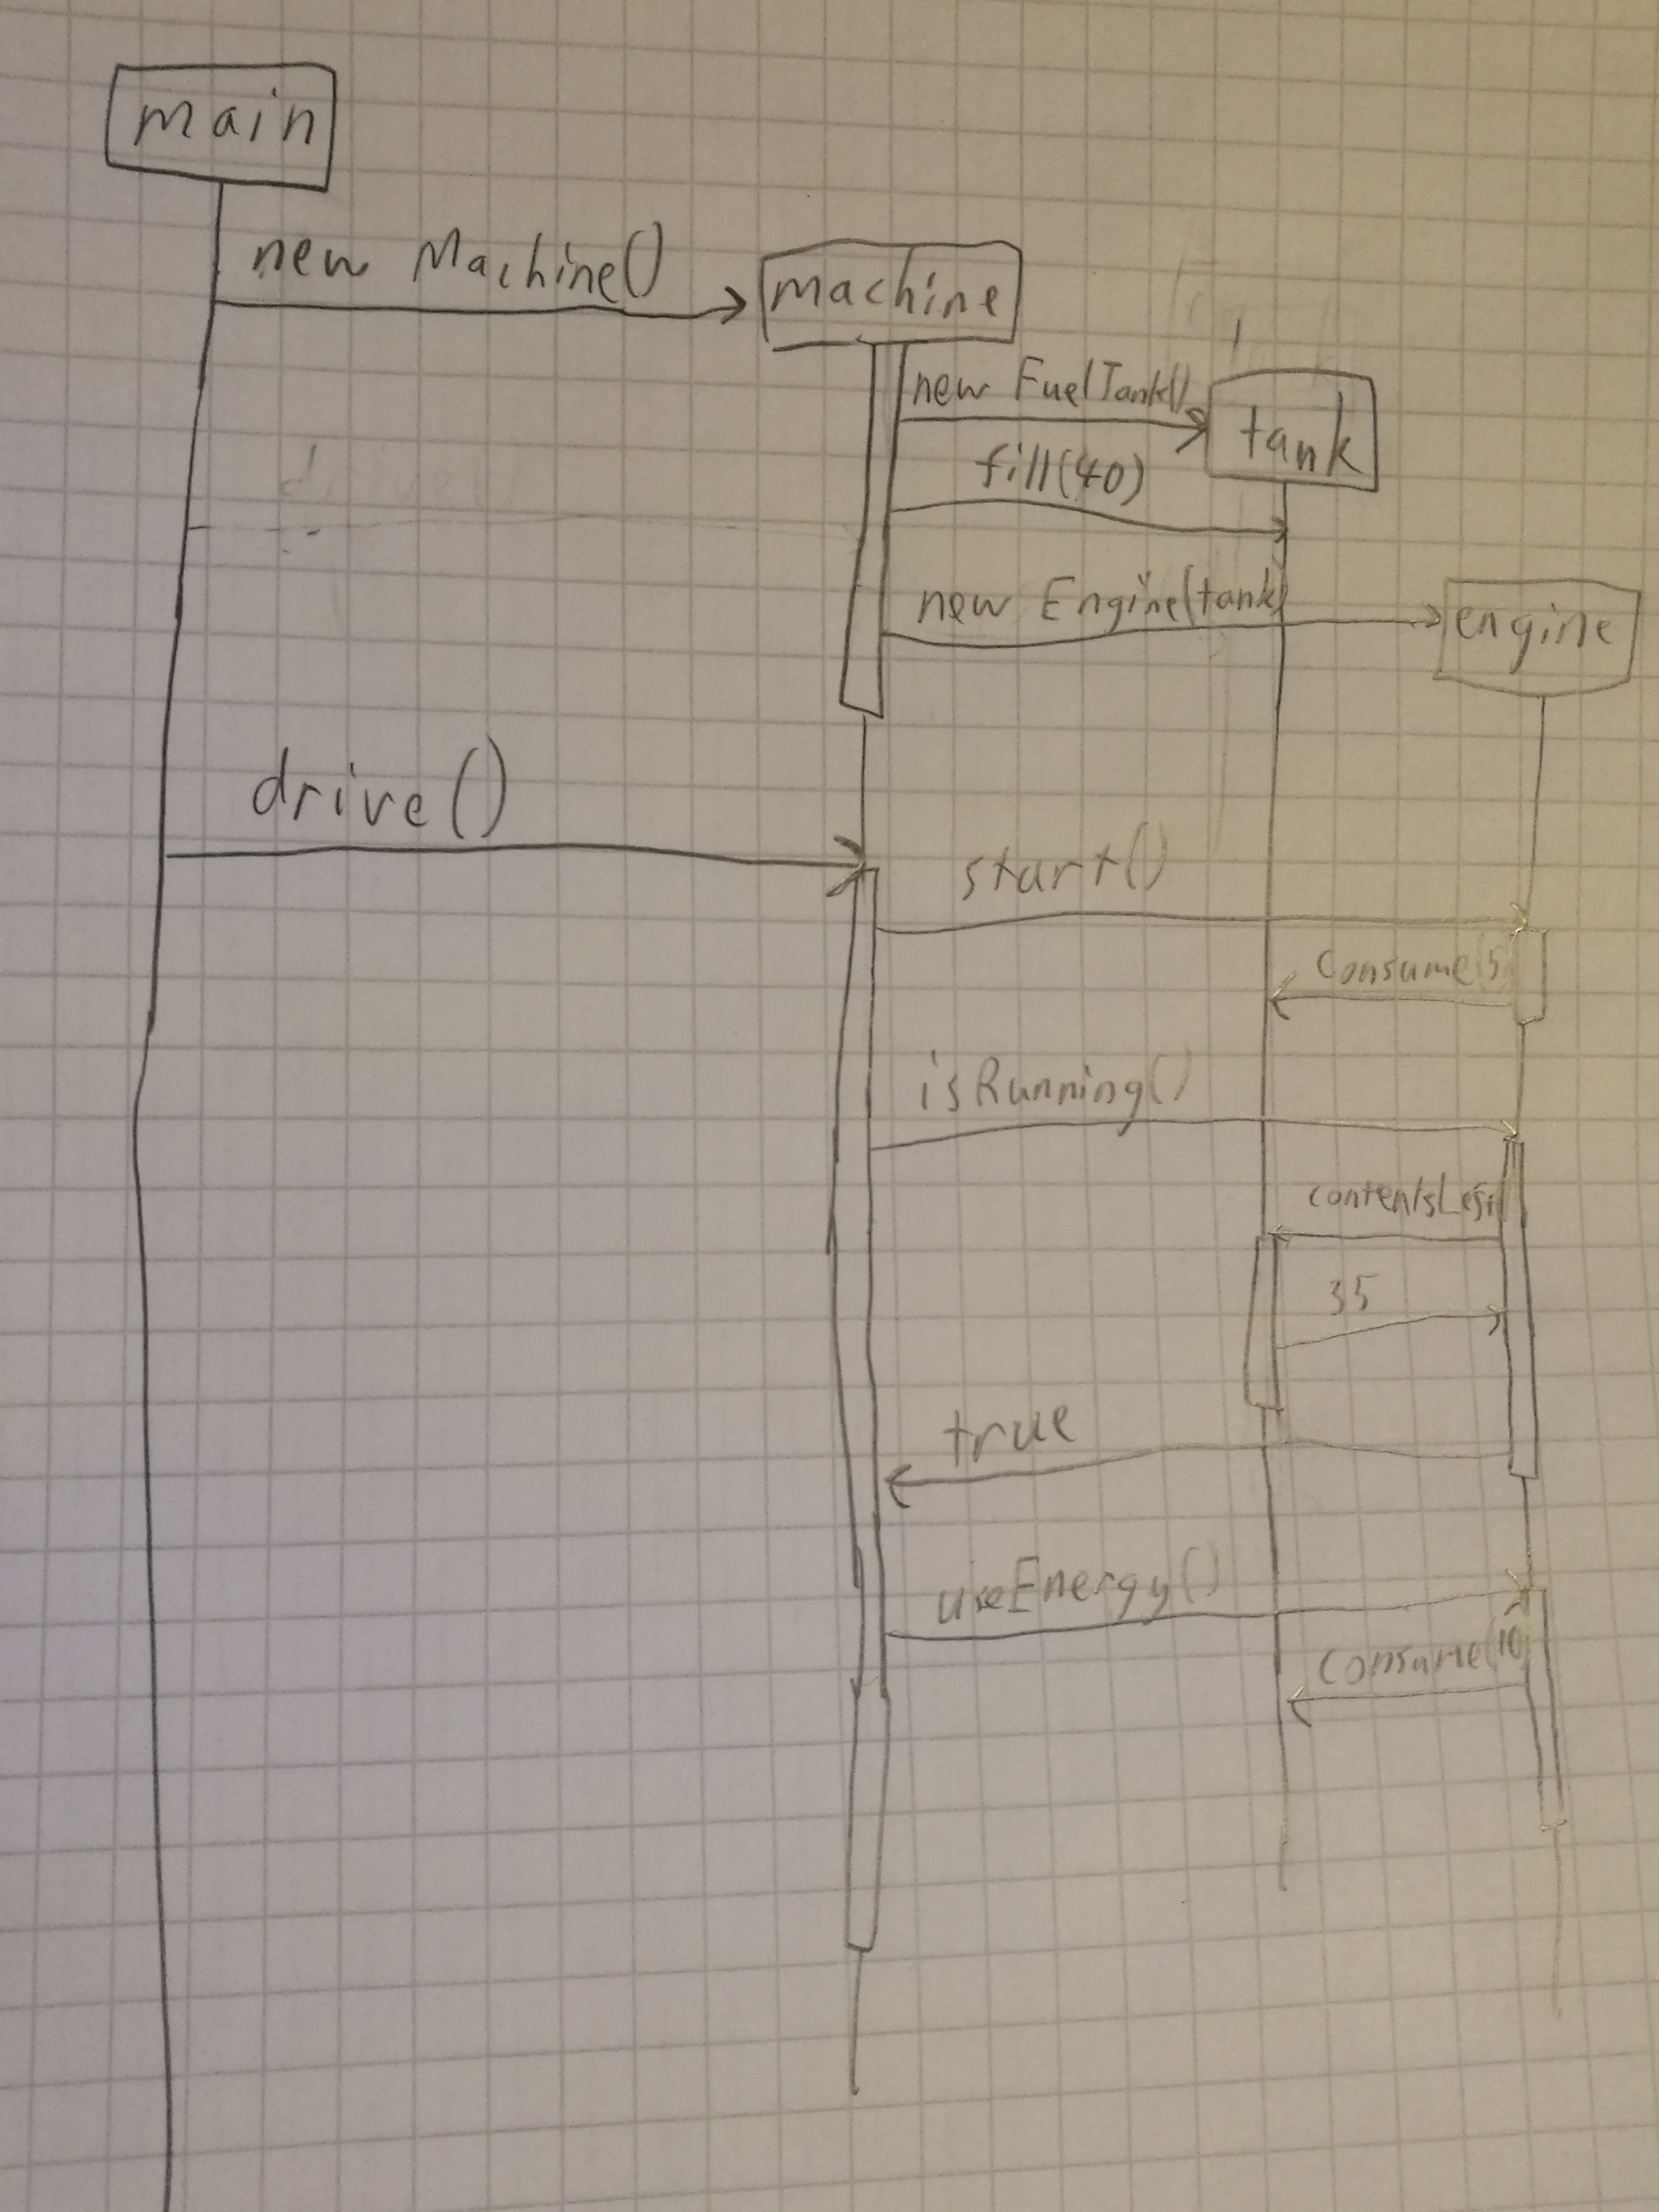 main
new Machine()
machine
new FuelTank()
tank
fill(40)
new Engine(tank)
engine
drive()
start()
consume(5
isRunning()
35
true
useEnergy()
consume(10